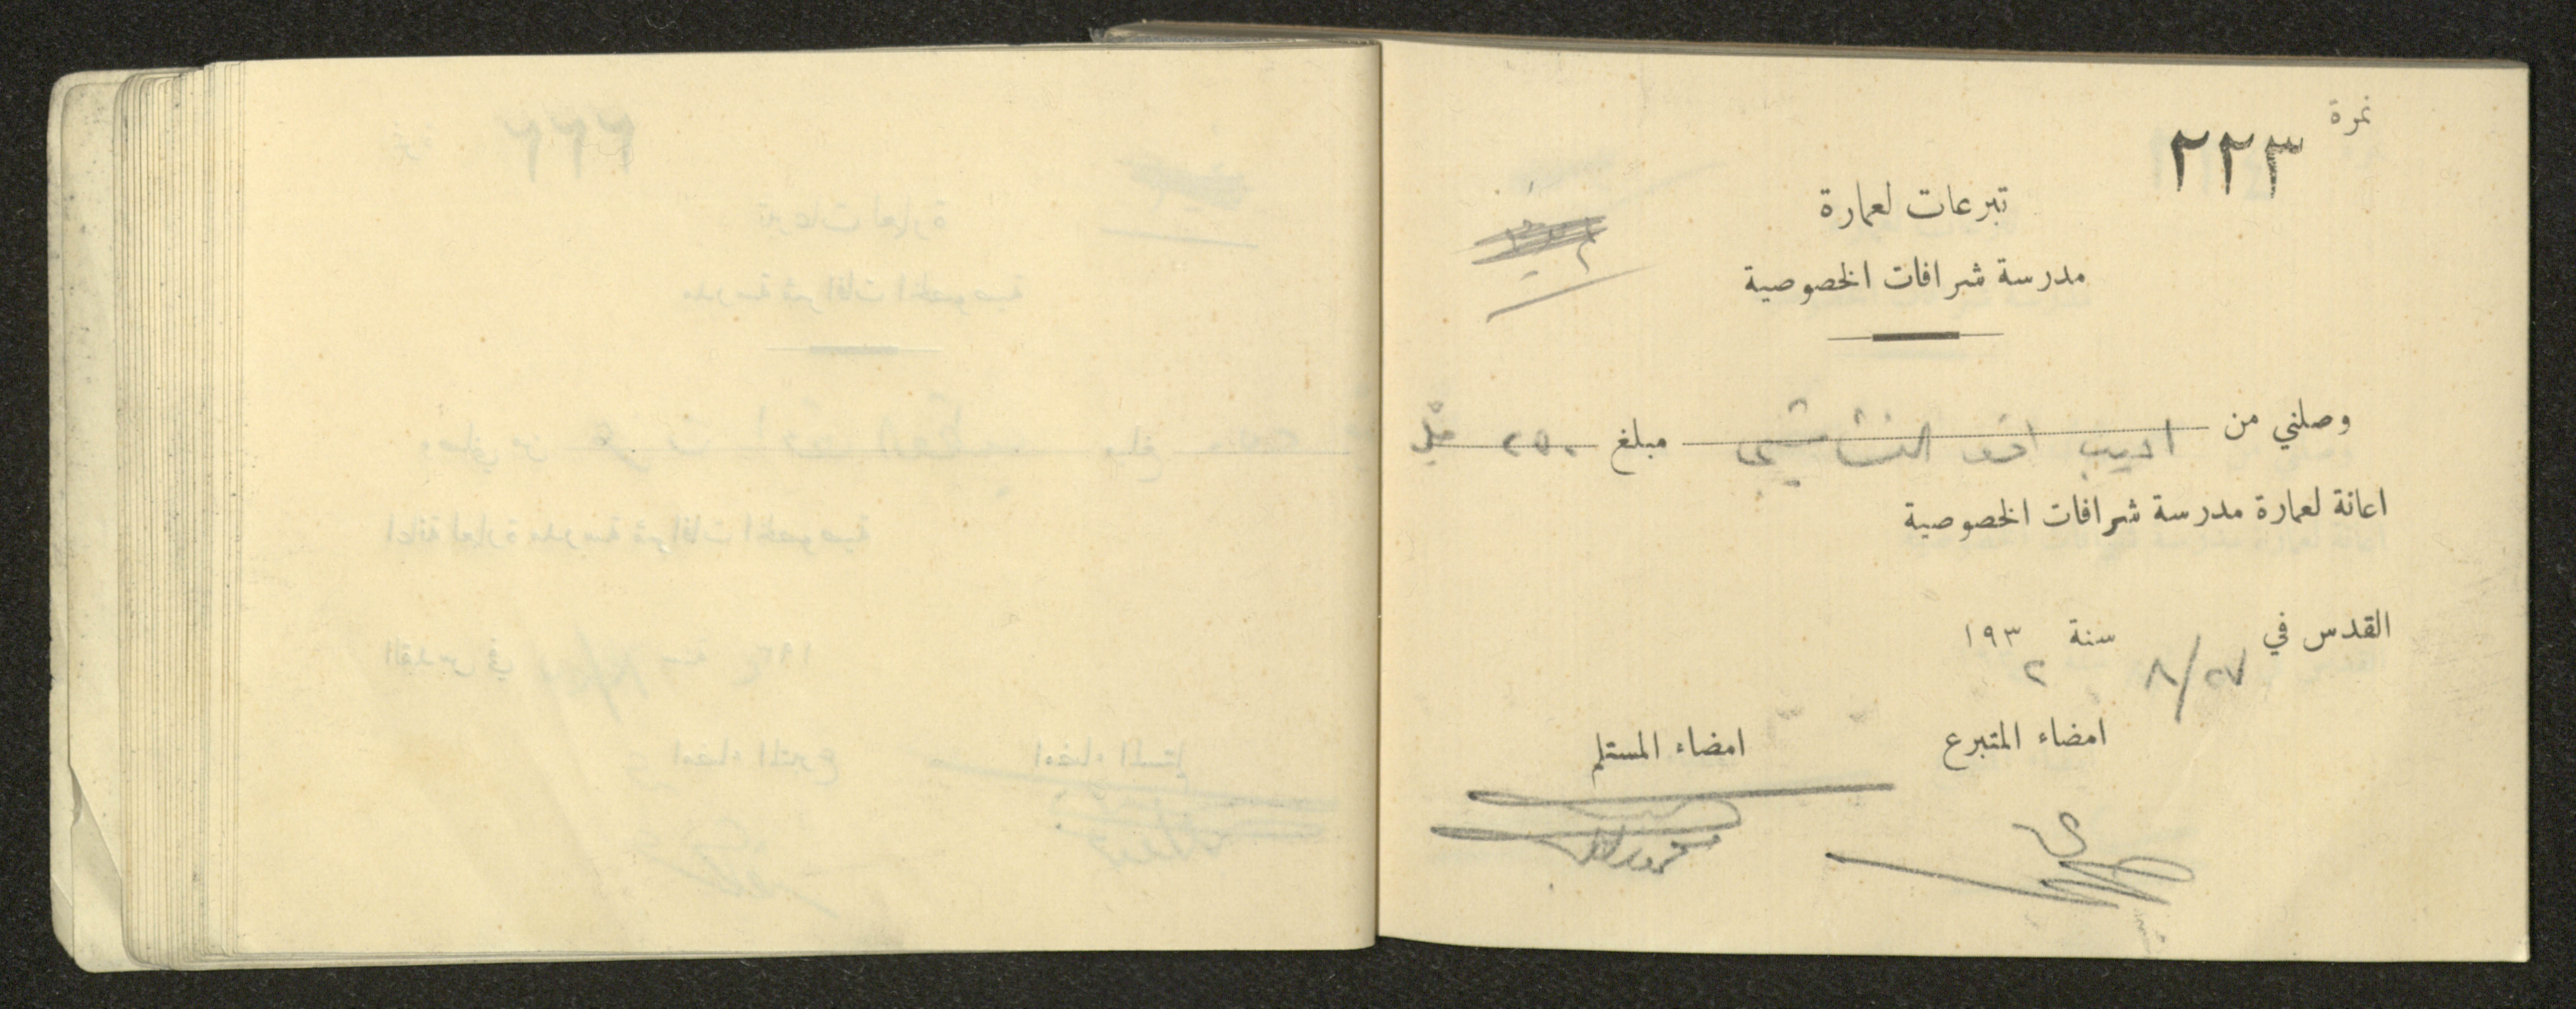 نمرة
٢٢٣
تبرعات لعمارة
مدرسة شرافات الخصوصية
وصلني من اديب افند النشاشيبي مبلغ ٢٥٠ مل
اعانة لعمارة مدرسة شرافات الخصوصية
القدس في ٢٧/٨ سنة ١٩٣٢
امضاء المتبرع امضاء المستلم